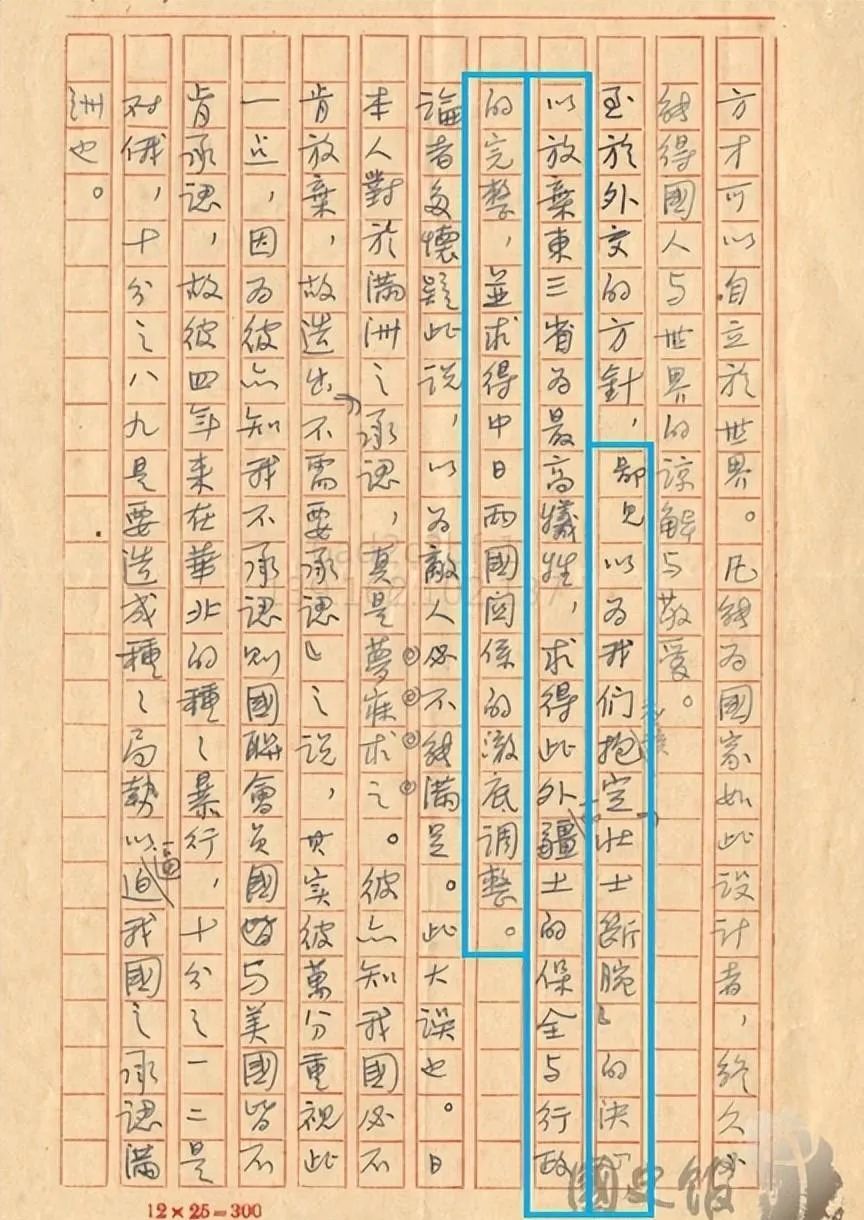 方才可以自立於世界。凡能为國家如此设计者，终久必
能得國人与世界的諒解与敬爱。
至於外交的方針，鄙見以为我们抱定壮士斷腕」的决心
以放棄東三省为最高犧牲，求得此外疆土的保全与行政
的完整，並求得中日两國関係的澈底調整。
論者多懷疑此说，以为敵人必不能满足。此大误也。日
本人對於满洲之承認，真是夢寐求之。彼亦知我國必不
肯放棄，故造出「不需要承認」之说，其实彼萬分重視此
一点，因为彼亦知我不承認则國联會员國皆与美國皆不
肯承認，故彼四年来在華北的種々暴行，十分之一二是
对俄，十分之八九是要造成種々局勢以逼迫我國之承認满
洲也。
12×25=300
國史館